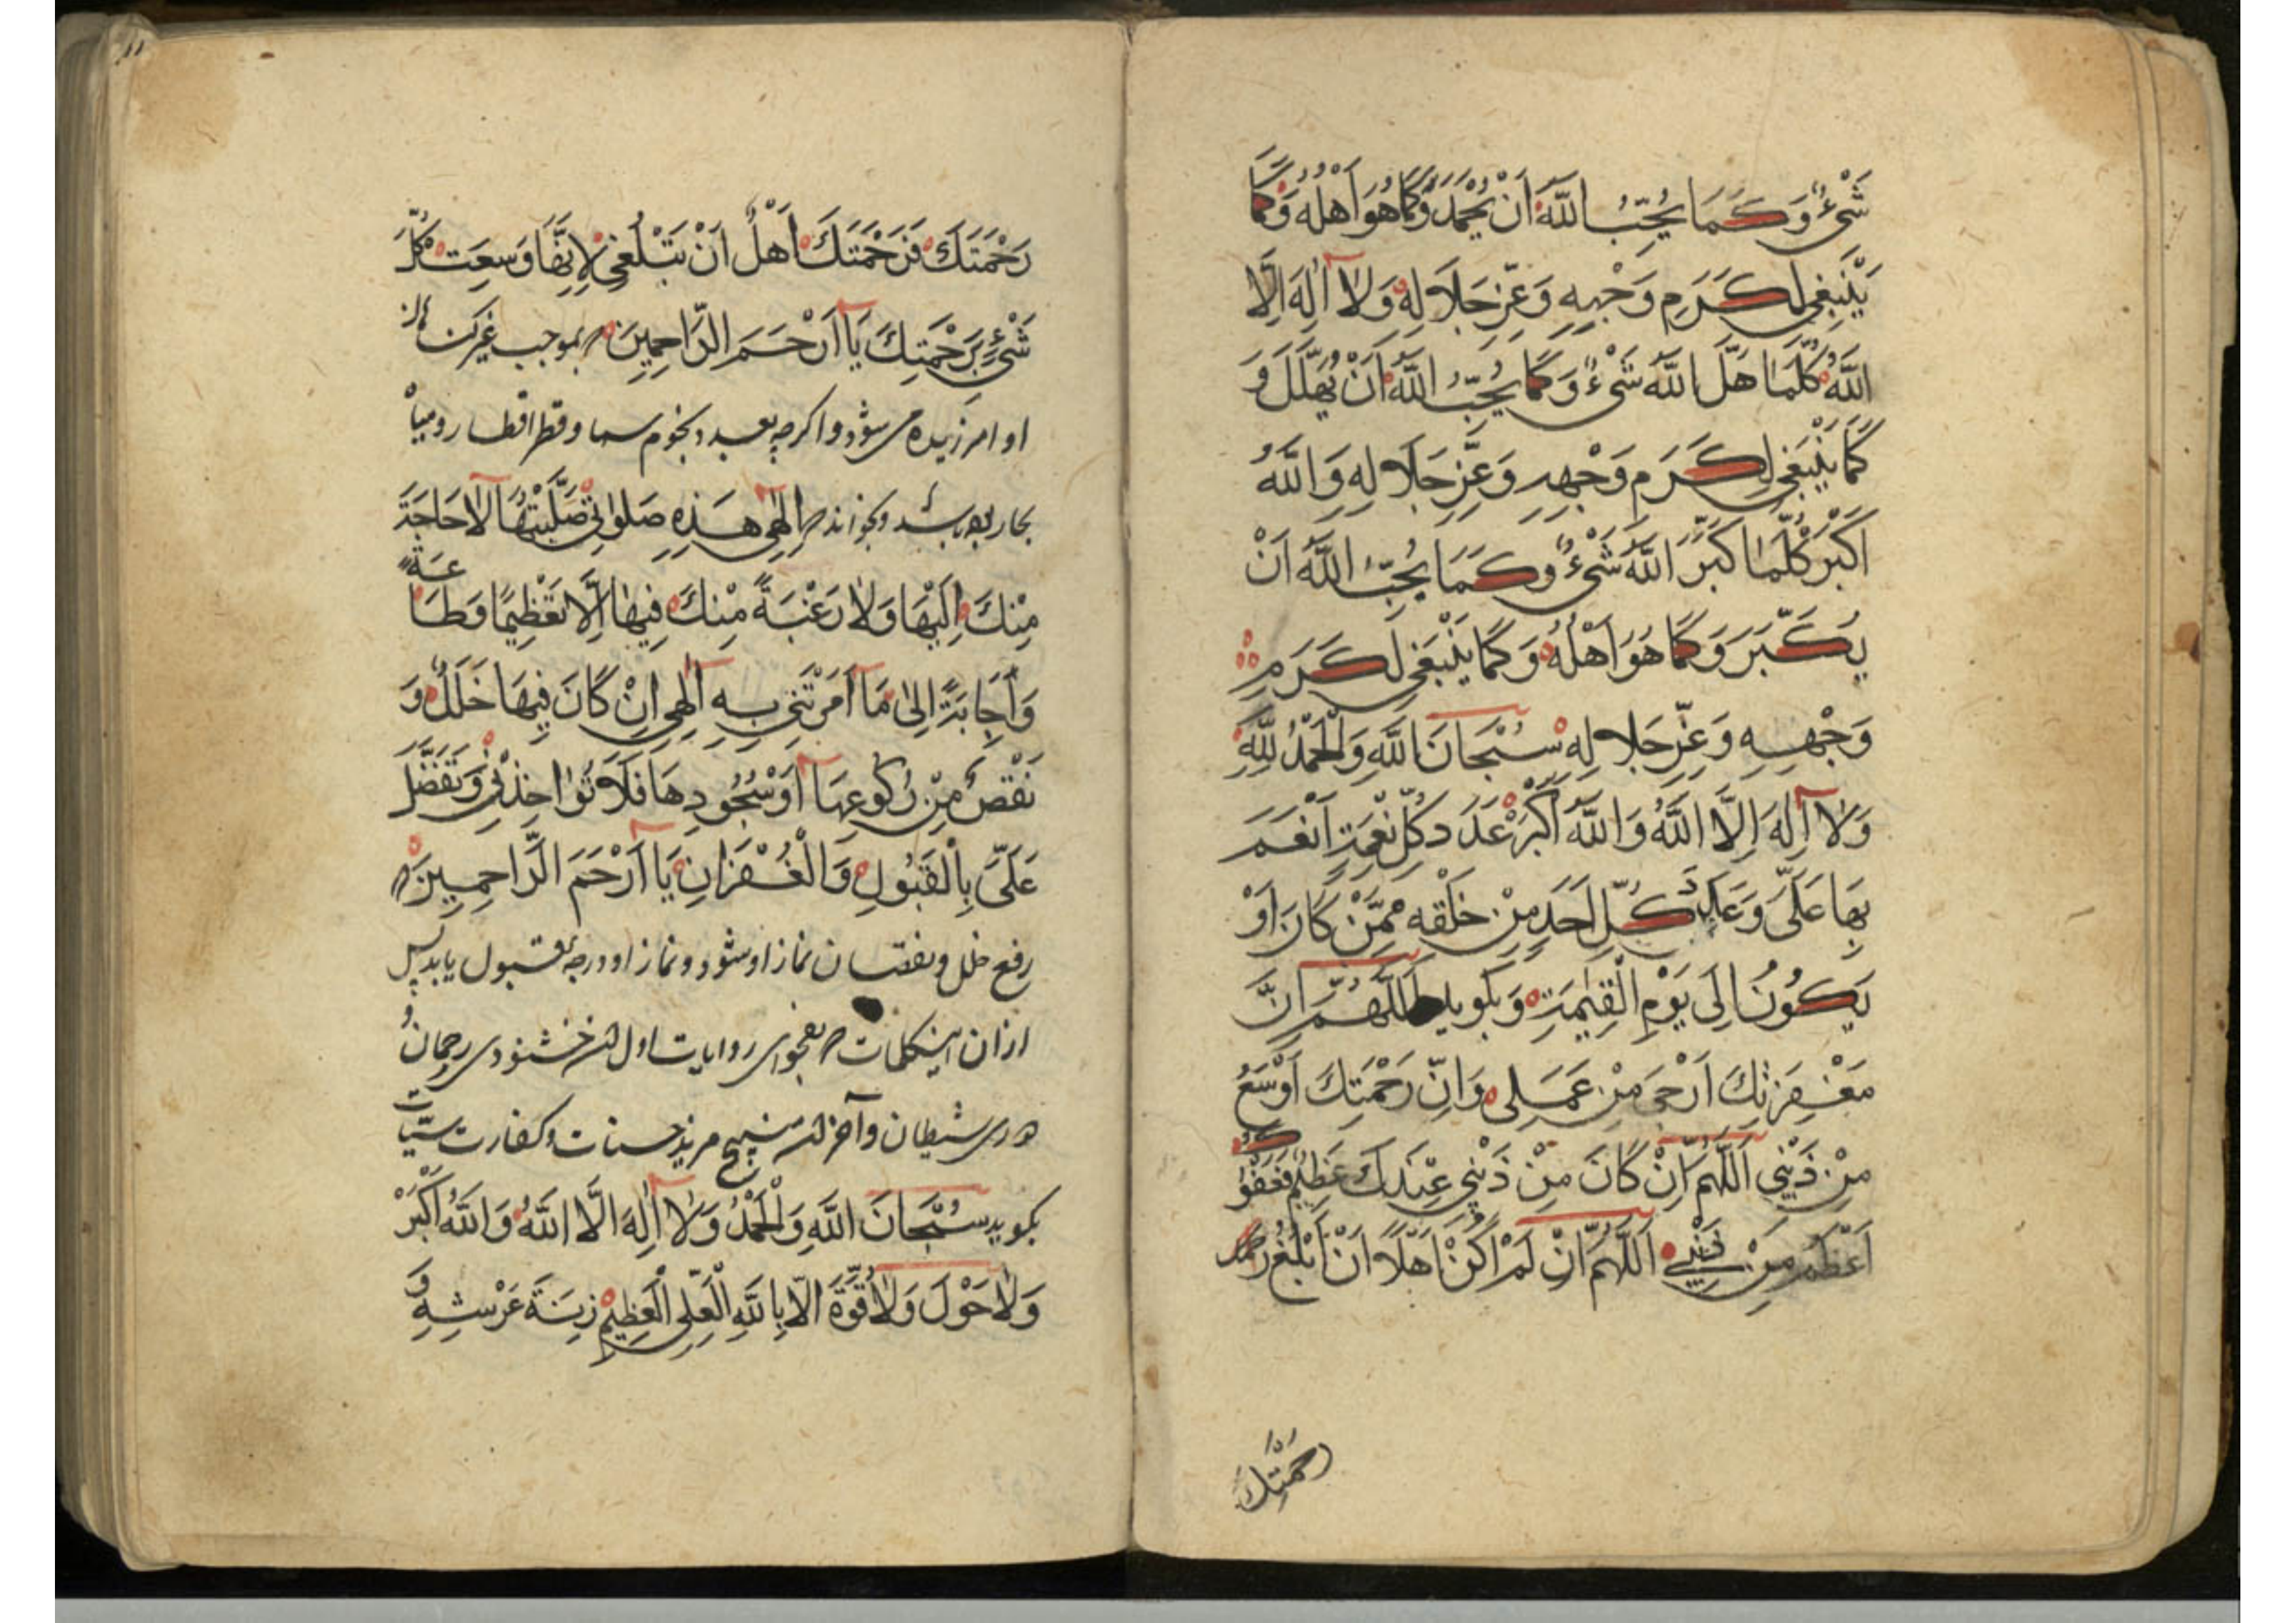 شَيْءٌ وَكَمَا يُحِبُّ اللَّهُ أَنْ يُحْمَدَ وَكَمَا هُوَ أَهْلُهُ وَكَمَا
يَنْبَغِي لِكَرَمِ وَجْهِهِ وَعِزِّ جَلَالِهِ وَلَا إِلَهَ إِلَّا
اللَّهُ كُلَّمَا هَلَّلَ اللَّهَ شَيْءٌ وَكَمَا يُحِبُّ اللَّهُ أَنْ يُهَلَّلَ وَ
كَمَا يَنْبَغِي لِكَرَمِ وَجْهِهِ وَعِزِّ جَلَالِهِ وَاللَّهُ
أَكْبَرُ كُلَّمَا كَبَّرَ اللَّهَ شَيْءٌ وَكَمَا يُحِبُّ اللَّهُ أَنْ
يُكَبَّرَ وَكَمَا هُوَ أَهْلُهُ وَكَمَا يَنْبَغِي لِكَرَمِ
وَجْهِهِ وَعِزِّ جَلَالِهِ سُبْحَانَ اللَّهِ وَالْحَمْدُ لِلَّهِ
وَلَا إِلَهَ إِلَّا اللَّهُ وَاللَّهُ أَكْبَرُ عَدَدَ كُلِّ نِعْمَةٍ أَنْعَمَ
بِهَا عَلَيَّ وَعَلَى كُلِّ أَحَدٍ مِنْ خَلْقِهِ مِمَّنْ كَانَ أَوْ
يَكُونُ إِلَى يَوْمِ الْقِيٰمَةِ وَبكويد اَللَّهُمَّ إِنَّ
مَغْفِرَتِكَ أَرْجَى مِنْ عَمَلِي وَإِنَّ رَحْمَتِكَ أَوْسَعُ
مِنْ ذَنْبِي اَللَّهُمَّ إِنْ كَانَ مِنْ ذَنْبِي عِنْدَكَ عَظِيمٌ فَعَفْوُكَ
أَعْظَمُ مِنْ ذَنْبِي اَللَّهُمَّ إِنْ لَمْ أَكُنْ أَهْلًا أَنْ أَبْلُغَ رَحْمَتَكَ
رحمتك
۱۱
رَحْمَتَكَ فَرَحْمَتَكَ أَهْلٌ أَنْ تَبْلُغَنِي لِأَنَّهَا وَسِعَتْ كُلَّ
شَيْءٍ بِرَحْمَتِكَ يَا أَرْحَمَ الرَّاحِمِينَ بموجب خبر
او امرزیده می شود و اکرچه بعدد نجوم سما و قطر اقطار و میاه
بحار باشد وبخواند إِلٰهِي هَذِهِ صَلٰوتِي صَلَّيْتُهَا لَا لِحَاجَةٍ
مِنْكَ إِلَيْهَا وَلَا رَغْبَةً مِنْكَ فِيهَا إِلَّا تَعْظِيمًا وَطَاعَةً
وَإِجَابَةً إِلَى مَا أَمَرْتَنِي بِهِ إِلٰهِي إِنْ كَانَ فِيهَا خَلَلٌ وَ
نَقْصٌ مِنْ رُكُوعِهَا أَوْ سُجُودِهَا فَلَا تُؤَاخِذْنِي وَتَفَضَّلْ
عَلَيَّ بِالْقَبُولِ وَالْغُفْرَانِ يَا أَرْحَمَ الرَّاحِمِينَ
رفع خلل ونقصان نماز او شود ونماز او درجۀ قبول یابد پس
ازان اینکلمات که بفحوای روایات اولش خشنودی رحمان و
دوری شیطان وآخرش منهج مزید حسنات وکفارت سیّات
بکوید سُبْحَانَ اللَّهِ وَالْحَمْدُ وَلَا إِلَهَ إِلَّا اللَّهُ وَاللَّهُ أَكْبَرُ
وَلَا حَوْلَ وَلَا قُوَّةَ إِلَّا بِاللَّهِ الْعَلِيِّ الْعَظِيمِ زِنَةَ عَرْشِهِ وَ